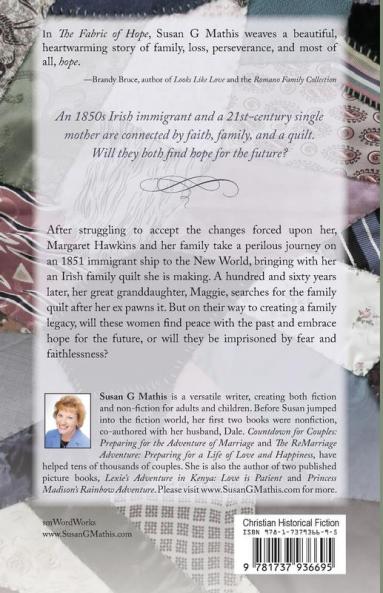 In The Fabric of Hope, Susan G Mathis weaves a beautiful,
heartwarming story of family, loss, perseverance, and most of
all, hope.
—Brandy Bruce, author of Looks Like Love and the Romano Family Collection
An 1850s Irish immigrant and a 21st-century single
mother are connected by faith, family, and a quilt.
Will they both find hope for the future?
After struggling to accept the changes forced upon her,
Margaret Hawkins and her family take a perilous journey on
an 1851 immigrant ship to the New World, bringing with her
an Irish family quilt she is making. A hundred and sixty years
later, her great granddaughter, Maggie, searches for the family
quilt after her ex pawns it. But on their way to creating a family
legacy, will these women find peace with the past and embrace
hope for the future, or will they be imprisoned by fear and
faithlessness?
Susan G Mathis is a versatile writer, creating both fiction
and non-fiction for adults and children. Before Susan jumped
into the fiction world, her first two books were nonfiction,
co-authored with her husband, Dale. Countdown for Couples:
Preparing for the Adventure of Marriage and The ReMarriage
Adventure: Preparing for a Life of Love and Happiness, have
helped tens of thousands of couples. She is also the author of two published
picture books, Lexie's Adventure in Kenya: Love is Patient and Princess
Madison's Rainbow Adventure. Please visit www.SusanGMathis.com for more.
smWordWorks
www.SusanGMathis.com
Christian Historical Fiction
ISBN 978-1-7379366-9-5
9 781737 936695